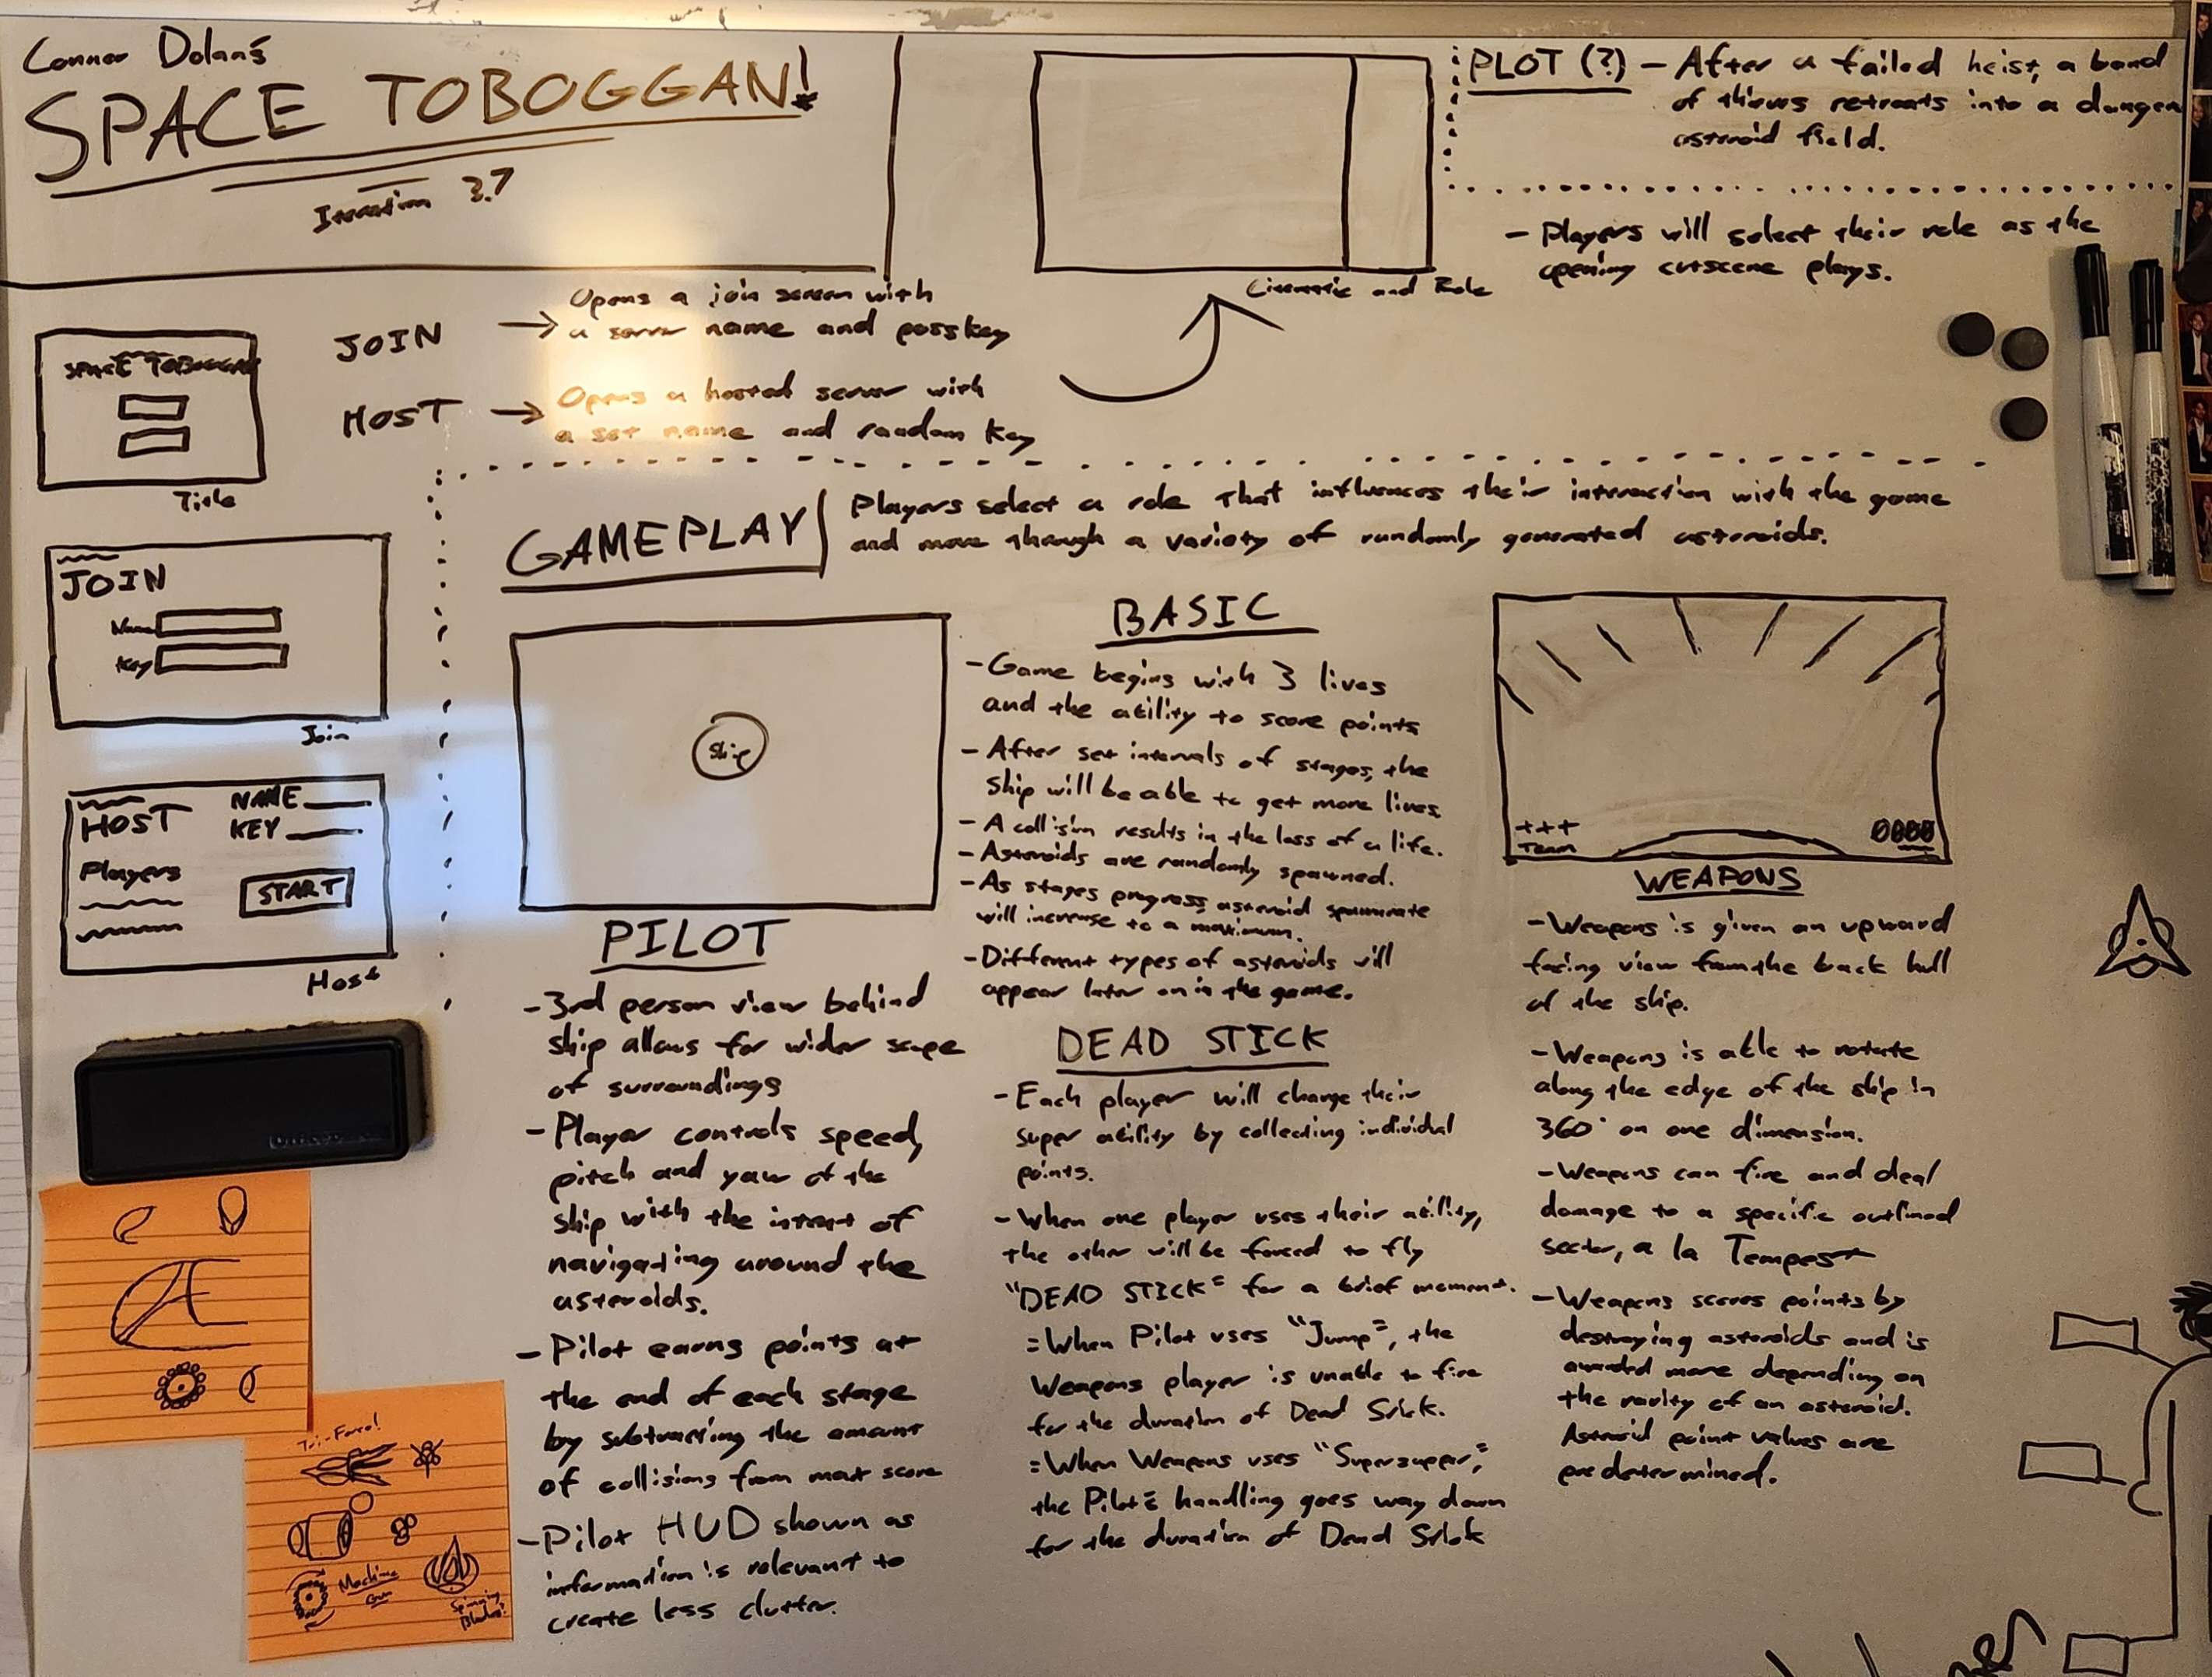 Connor Dolan's
SPACE TOBOGGAN!
Iteration 3.7
PLOT (?) – After a failed heist, a band
of thieves retreats into a danger
asteroid field.
– Players will select their role as the
opening cutscene plays.
Cinematic and Role
JOIN → Opens a join screen with
a server name and passkey
HOST → Opens a hosted server with
a set name and random key
SPACE TOBOGGAN
Title
JOIN
Name
Key
Join
HOST
NAME
KEY
Players
START
Host
GAMEPLAY
Players select a role that influences their interaction with the game
and move through a variety of randomly generated asteroids.
Ship
PILOT
– 3rd person view behind
ship allows for wider scope
of surroundings
– Player controls speed,
pitch and yaw of the
ship with the intent of
navigating around the
asteroids.
– Pilot earns points at
the end of each stage
by subtracting the amount
of collisions from max score
– Pilot HUD shown as
information is relevant to
create less clutter.
BASIC
– Game begins with 3 lives
and the ability to score points
– After set intervals of stages, the
ship will be able to get more lives
– A collision results in the loss of a life.
– Asteroids are randomly spawned.
– As stages progress, asteroid spawnrate
will increase to a maximum.
– Different types of asteroids will
appear later on in the game.
DEAD STICK
– Each player will change their
super ability by collecting individual
points.
– When one player uses their ability,
the other will be forced to fly
"DEAD STICK" for a brief moment.
= When Pilot uses "Jump", the
Weapons player is unable to fire
for the duration of Dead Stick.
= When Weapons uses "Superzapper,"
the Pilot's handling goes way down
for the duration of Dead Stick
+++
Team
0000
WEAPONS
– Weapons is given an upward
facing view from the back hull
of the ship.
– Weapons is able to rotate
along the edge of the ship in
360° on one dimension.
– Weapons can fire and deal
damage to a specific outlined
sector, a la Tempest
– Weapons scores points by
destroying asteroids and is
awarded more depending on
the rarity of an asteroid.
Asteroid point values are
predetermined.
Tri-Force!
Machine
Gun
Spinning
Blades!